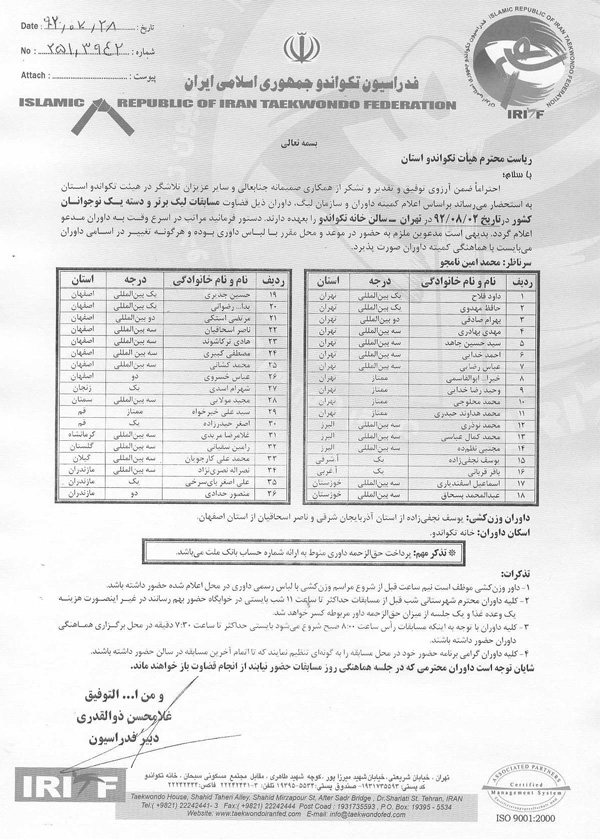 Date : ۹۲,۰۷,۲۸ تاریخ :
No : ۲۵۱,۳۹۴۲ شماره :
Attach : پیوست :
فدراسیون تکواندو جمهوری اسلامی ایران
ISLAMIC REPUBLIC OF IRAN TAEKWONDO FEDERATION
ISLAMIC REPUBLIC OF IRAN TAEKWONDO FEDERATION
IRITF
بسمه تعالی
ریاست محترم هیأت تکواندو استان
با سلام؛
احتراماً ضمن آرزوی توفیق و تقدیر و تشکر از همکاری صمیمانه جنابعالی و سایر عزیزان تلاشگر در هیئت تکواندو استان
به استحضار می‌رساند براساس اعلام کمیته داوران و سازمان لیگ، داوران ذیل قضاوت مسابقات لیگ برتر و دسته یک نوجوانان
کشور در تاریخ ۹۲/۰۸/۰۲ در تهران – سالن خانه تکواندو را بعهده دارند. دستور فرمائید مراتب در اسرع وقت به داوران مدعو
اعلام گردد. بدیهی است مدعوین ملزم به حضور در موعد و محل مقرر با لباس داوری بوده و هرگونه تغییر در اسامی داوران
می‌بایست با هماهنگی کمیته داوران صورت پذیرد.
سرناظر: محمد امین نامجو
ردیف نام و نام خانوادگی درجه استان
۱ داود فلاح یک بین‌المللی تهران
۲ حافظ مهدوی یک بین‌المللی تهران
۳ بهرام صادقی دو بین‌المللی تهران
۴ مهدی بهادری سه بین‌المللی تهران
۵ سید حسین جاهد سه بین‌المللی تهران
۶ احمد خدایی سه بین‌المللی تهران
۷ عباس رضایی سه بین‌المللی تهران
۸ خیرا... ابوالقاسمی ممتاز تهران
۹ وحید رضا خدایی ممتاز تهران
۱۰ محمد محلوجی ممتاز تهران
۱۱ محمد هداوند حیدری ممتاز تهران
۱۲ محمد نوذری سه بین‌المللی البرز
۱۳ محمد کمال عباسی سه بین‌المللی البرز
۱۴ مجتبی نظم‌ده سه بین‌المللی البرز
۱۵ یوسف نجفی‌زاده یک آ.شرقی
۱۶ باقر قربانی یک آ.غربی
۱۷ اسماعیل اسفندیاری سه بین‌المللی خوزستان
۱۸ عبدالمحمد پسحاق سه بین‌المللی خوزستان
ردیف نام و نام خانوادگی درجه استان
۱۹ حسین جدیری یک بین‌المللی اصفهان
۲۰ یدا... رضوانی یک بین‌المللی اصفهان
۲۱ مرتضی استکی دو بین‌المللی اصفهان
۲۲ ناصر اسحاقیان سه بین‌المللی اصفهان
۲۳ هادی ترکاشوند سه بین‌المللی اصفهان
۲۴ مصطفی کبیری سه بین‌المللی اصفهان
۲۵ محمد کشانی سه بین‌المللی اصفهان
۲۶ عباس خسروی دو اصفهان
۲۷ شهرام اسدی یک زنجان
۲۸ مجید مولایی سه بین‌المللی سمنان
۲۹ سید علی خیرخواه ممتاز قم
۳۰ اصغر حیدرزاده یک قم
۳۱ غلامرضا مریدی سه بین‌المللی کرمانشاه
۳۲ رامین سقبائی سه بین‌المللی گلستان
۳۳ محمد علی کارجویان سه بین‌المللی گیلان
۳۴ نصراله نصری‌نژاد سه بین‌المللی مازندران
۳۵ علی اصغر بای‌سرخی یک مازندران
۳۶ منصور حدادی دو مازندران
داوران وزن‌کشی: یوسف نجفی‌زاده از استان آذربایجان شرقی و ناصر اسحاقیان از استان اصفهان.
اسکان داوران: خانه تکواندو.
* تذکر مهم: پرداخت حق‌الزحمه داوری منوط به ارائه شماره حساب بانک ملت می‌باشد.
تذکرات:
۱- داور وزن‌کشی موظف است نیم ساعت قبل از شروع مراسم وزن‌کشی با لباس رسمی داوری در محل اعلام شده حضور داشته باشد.
۲- کلیه داوران محترم شهرستانی شب قبل از مسابقات حداکثر تا ساعت ۱۱ شب بایستی در خوابگاه حضور بهم رسانند در غیر اینصورت هزینه
یک وعده غذا و یک جلسه از میزان حق‌الزحمه داور مربوطه کسر خواهد شد.
۳- کلیه داوران با توجه به اینکه مسابقات رأس ساعت ۸:۰۰ صبح شروع می‌شود بایستی حداکثر تا ساعت ۷:۳۰ دقیقه در محل برگزاری هماهنگی
داوران حضور داشته باشند.
۴- کلیه داوران گرامی برنامه حضور خود در محل مسابقه را به گونه‌ای تنظیم نمایند که تا اتمام آخرین مسابقه در سالن حضور داشته باشند.
شایان توجه است داوران محترمی که در جلسه هماهنگی روز مسابقات حضور نیابند از انجام قضاوت باز خواهند ماند.
و من ا... التوفیق
غلامحسن ذوالقدری
دبیر فدراسیون
IRITF
تهران ، خیابان شریعتی، خیابان شهید میرزا پور ،کوچه شهید طاهری ، مقابل مجتمع مسکونی سبحان ، خانه تکواندو
کد پستی ۱۹۳۱۷۳۵۵۹۳ – صندوق پستی: ۵۵۳۴-۱۹۳۹۵ تلفن: ۳-۲۲۲۴۲۴۴۱ فاکس: ۲۲۲۴۲۴۴۴
Taekwondo House, Shahid Taheri Alley, Shahid Mirzapour St, After Sadr Bridge , Dr.Shariati St. Tehran, IRAN
Tel:( +9821) 22242441- 3 Fax:(+9821) 22242444 Post Coad : 1931735593 , P.O. Box: 19395 - 5534
Website: www.taekwondoiranfed.com E-mail: info@taekwondofed.com
ASSOCIATED PARTNERS
Certified
Management System
ISO 9001:2000